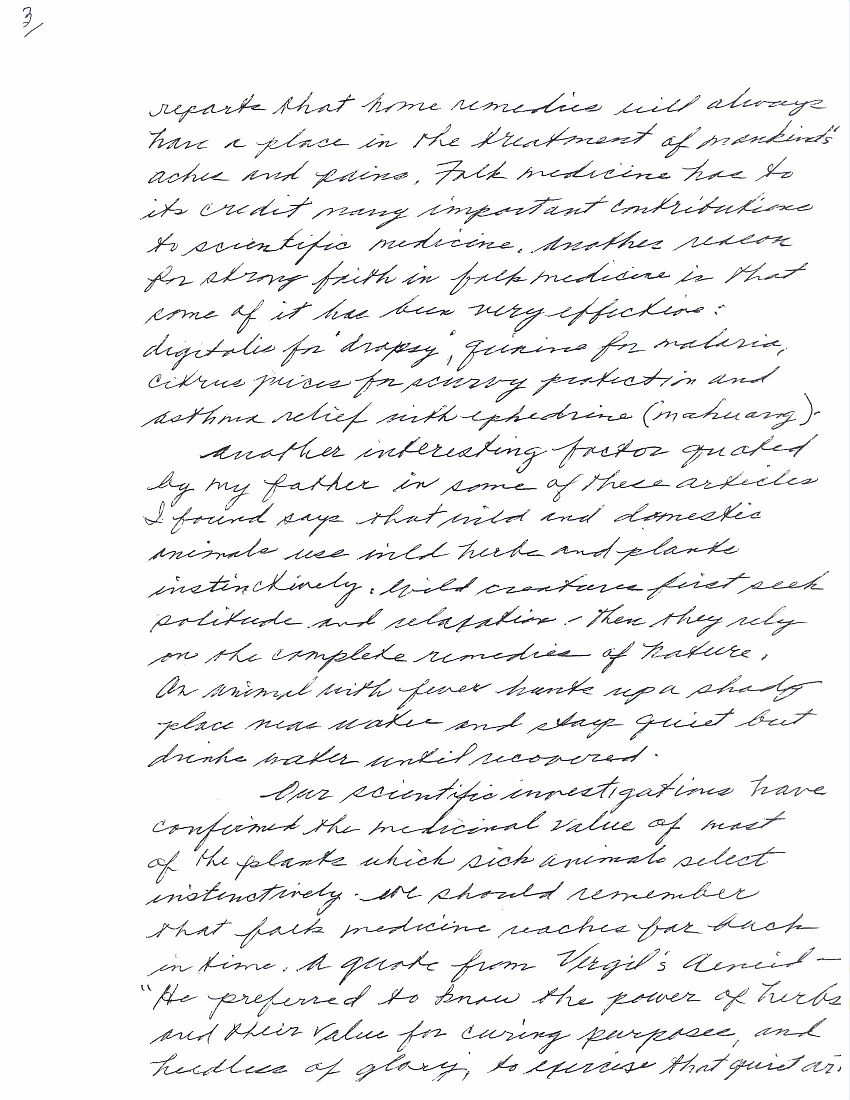 3/
reports that home remedies will always
have a place in the treatment of mankind's
aches and pains. Folk medicine has to
its credit many important contributions
to scientific medicine. Another reason
for strong faith in folk medicine is that
some of it has been very effective:
digitalis for "dropsy", quinine for malaria,
citrus juices for scurvy protection and
asthma relief with ephedrine (mahuang).
Another interesting factor quoted
by my father in some of these articles
I found says that wild and domestic
animals use wild herbs and plants
instinctively. Wild creatures first seek
solitude and relaxation - then they rely
on the complete remedies of Nature.
An animal with fever hunts up a shady
place near water and stays quiet but
drinks water until recovered.
Our scientific investigations have
confirmed the medicinal value of most
of the plants which sick animals select
instinctively. We should remember
that folk medicine reaches far back
in time. A quote from Virgil's Aeneid —
"He preferred to know the power of herbs
and their value for curing purposes, and
heedless of glory, to exercise that quiet ar